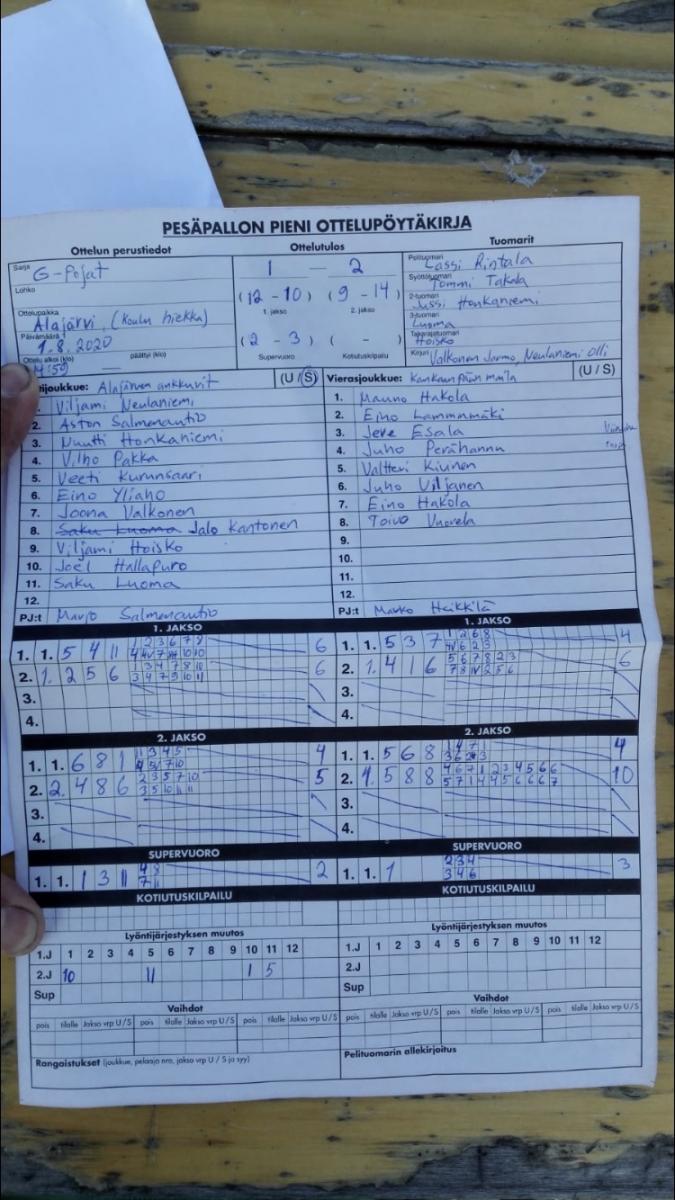 PESÄPALLON PIENI OTTELUPÖYTÄKIRJA
Ottelun perustiedot Ottelutulos Tuomarit
Sarja G-Pojat
Lohko
Ottelupaikka Alajärvi, (koulu hiekka)
Päivämäärä 1.8.2020
Ottelu alkoi (klo) 14:50 — päättyi (klo)
1 — 2
(12 - 10) (9 - 14)
1. jakso 2. jakso
(2 - 3) ( - )
Supervuoro Kotiutuskilpailu
Pelituomari Lassi Rintala
Syöttötuomari Tommi Takala
2-tuomari Jussi Honkaniemi
3-tuomari Luoma
Takarajatuomari Hoisko
Kirjuri Valkonen Jarmo, Neulaniemi Olli
Kotijoukkue: Alajärven ankkurit (U / S)
Viljami Neulaniemi
2. Aston Salmenautio
3. Nuutti Honkaniemi
4. Vilho Pakka
5. Veeti Kurunsaari
6. Eino Yliaho
7. Joona Valkonen
8. Saku Luoma Jalo Kantonen
9. Viljami Hoisko
10. Joel Hallapuro
11. Saku Luoma
12.
PJ:t Marjo Salmenautio
Vierasjoukkue: Kankaanpään maila (U / S)
1. Mauno Hakola
2. Eino Lamminmäki
3. Jere Esala
4. Juho Perähannu
5. Valtteri Kiunen
6. Juho Viljanen
7. Eino Hakola
8. Toivo Vuorela
9.
10.
11.
12.
PJ:t Marko Heikkilä
1. JAKSO
1. 1. 5 4 11 6
2. 1. 2 5 6 6
3.
4.
1. JAKSO
1. 1. 5 3 7 4
2. 1. 4 1 6 6
3.
4.
2. JAKSO
1. 1. 6 8 1 4
2. 2. 4 8 6 5
3.
4.
2. JAKSO
1. 1. 5 6 8 4
2. 1. 5 8 8 10
3.
4.
SUPERVUORO
1. 1. 1 3 11 2
SUPERVUORO
1. 1. 1 2 3 4 3 4 6 3
KOTIUTUSKILPAILU
KOTIUTUSKILPAILU
Lyöntijärjestyksen muutos
1.J 1 2 3 4 5 6 7 8 9 10 11 12
2.J 10 11 1 5
Sup
Lyöntijärjestyksen muutos
1.J 1 2 3 4 5 6 7 8 9 10 11 12
2.J
Sup
Vaihdot
pois tilalle Jakso vrp U / S pois tilalle Jakso vrp U / S
Vaihdot
pois tilalle Jakso vrp U / S pois tilalle Jakso vrp U / S
Rangaistukset (joukkue, pelaaja nro, jakso vrp U / S ja syy)
Pelituomarin allekirjoitus